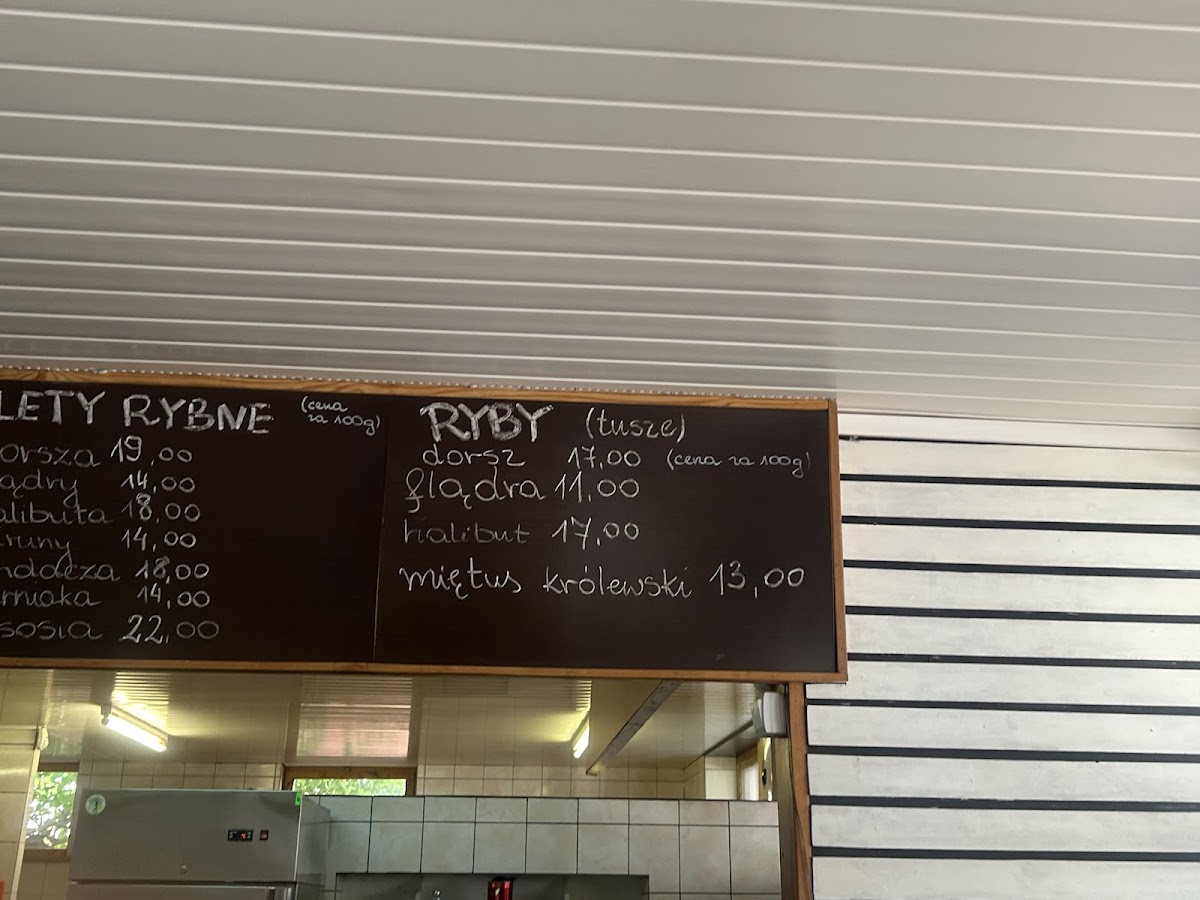 LETY RYBNE (cena
za 100g)
orsza 19,00
ądry 14,00
alibuta 18,00
runy 14,00
ndacza 18,00
rniaka 14,00
sosia 22,00
RYBY (tusze)
dorsz 17,00 (cena za 100g)
flądra 11,00
halibut 17,00
miętus królewski 13,00